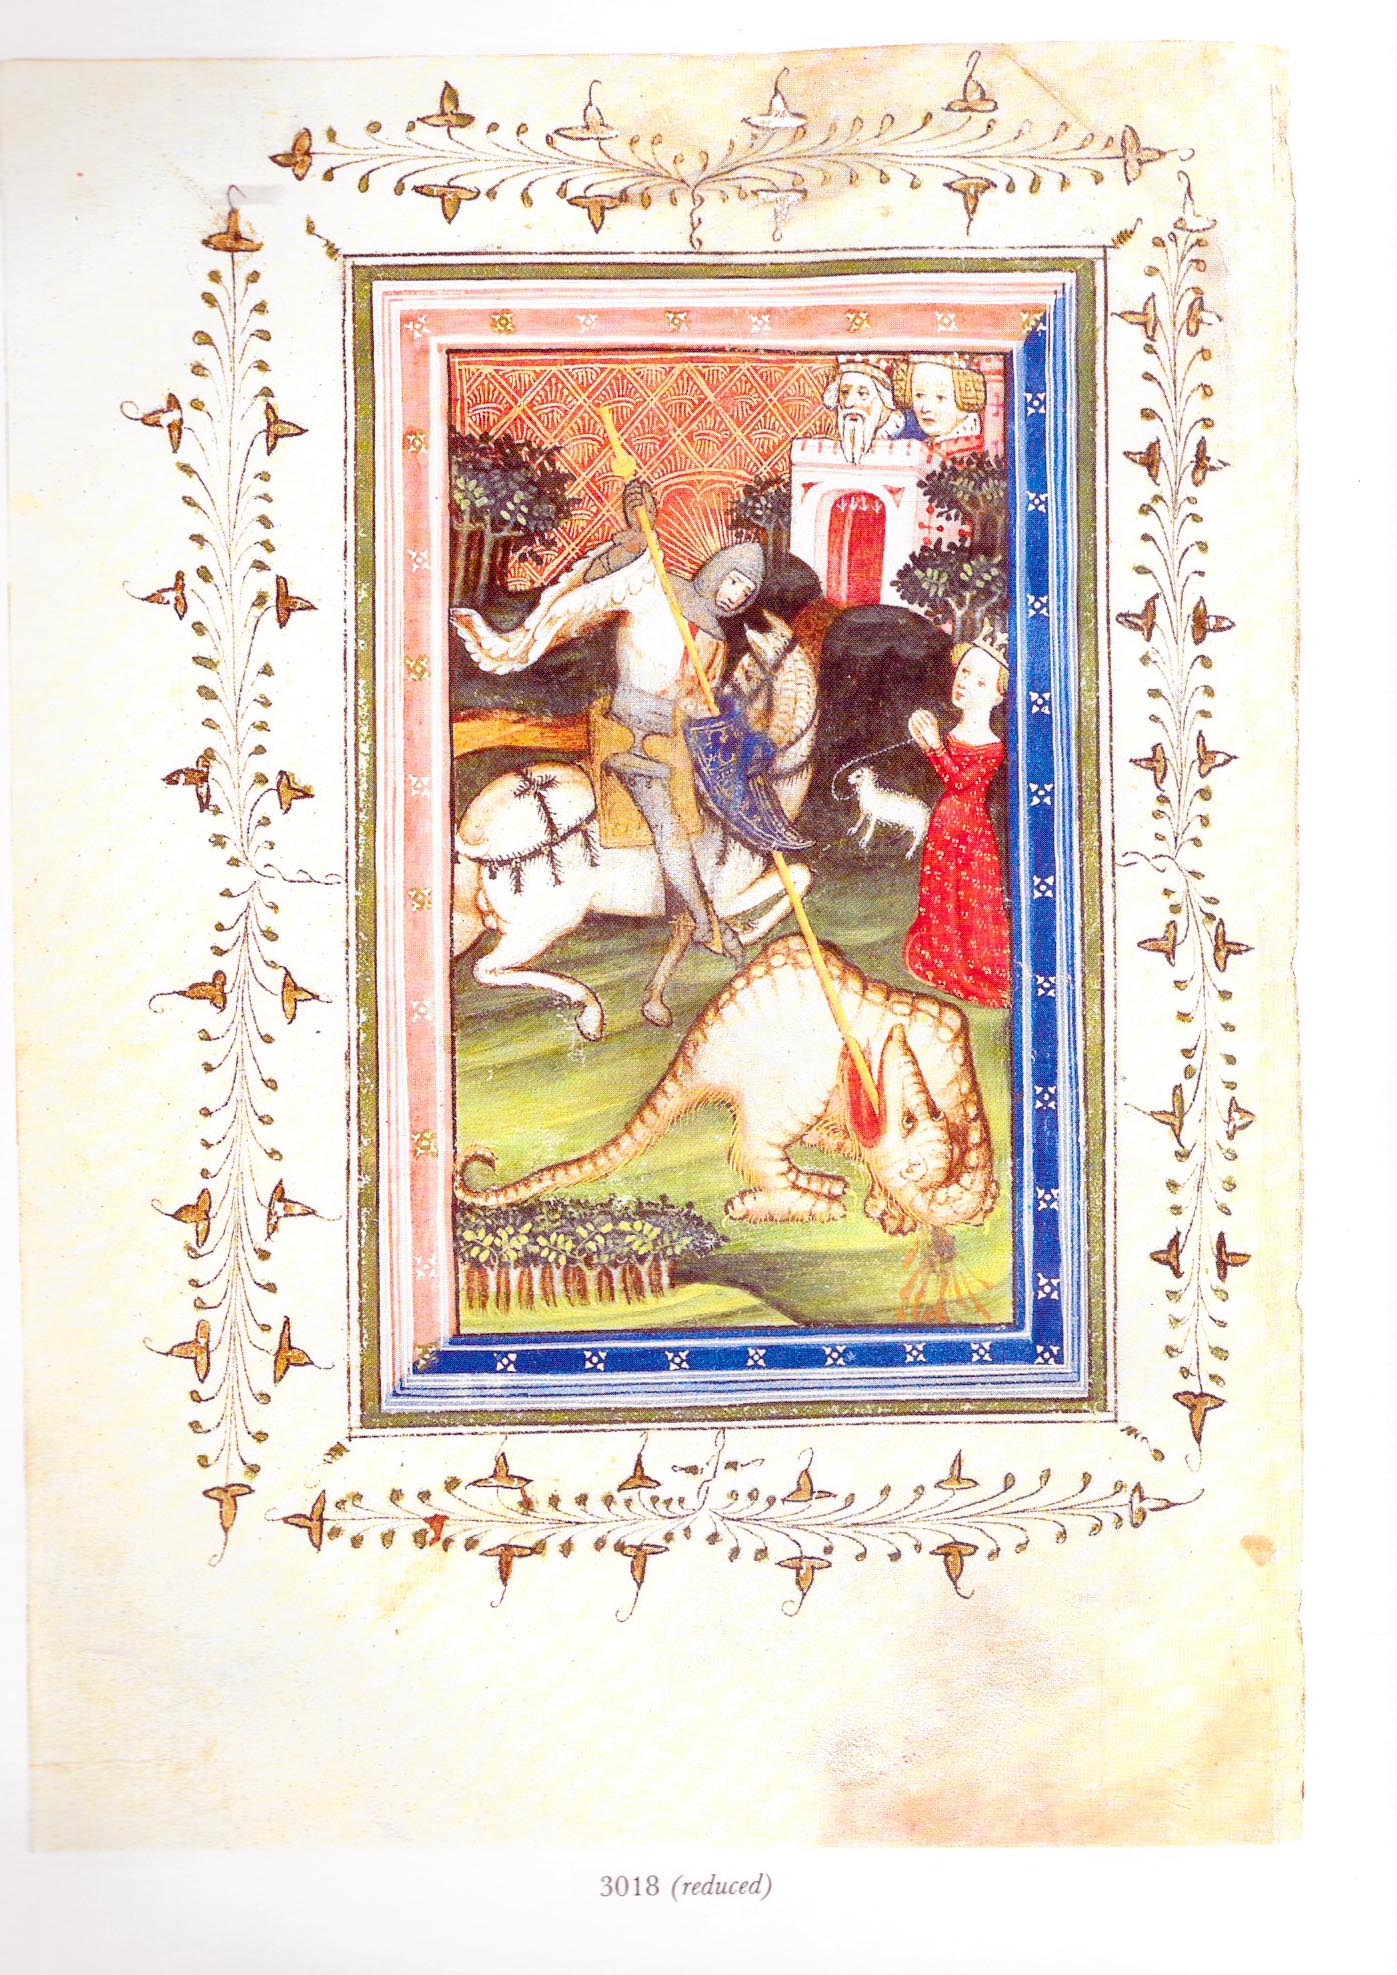 3018 (reduced)